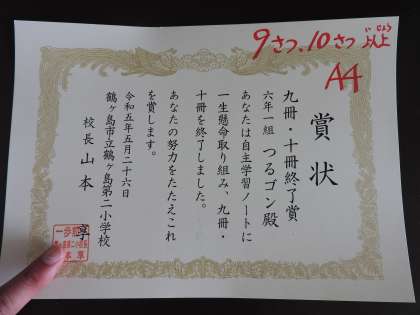 9さつ.10さつ以上
いじょう
A4
賞状
九冊・十冊終了賞
六年一組 つるゴン殿
あなたは自主学習ノートに
一生懸命取り組み、九冊・
十冊を終了しました。
あなたの努力をたたえこれ
を賞します。
令和五年五月二十六日
鶴ヶ島市立鶴ヶ島第二小学校
校長 山本 享